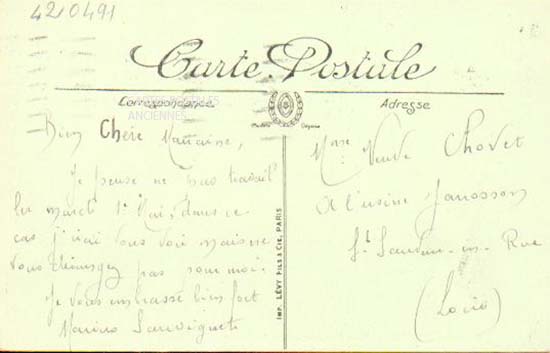 4210491
Carte Postale
CARTES POSTALES
ANCIENNES
Correspondance
Adresse
Bien Chère Marraine,
Je pense ne pas travail
les mardi 1er Mai, dans ce
cas j'irai vous voir mais ne
vous dérangez pas pour moi.
Je vous embrasse bien fort
IMP. LÉVY FILS & CIE, PARIS
Mme Veuve Chovet
à l'usine
en
(Loire)